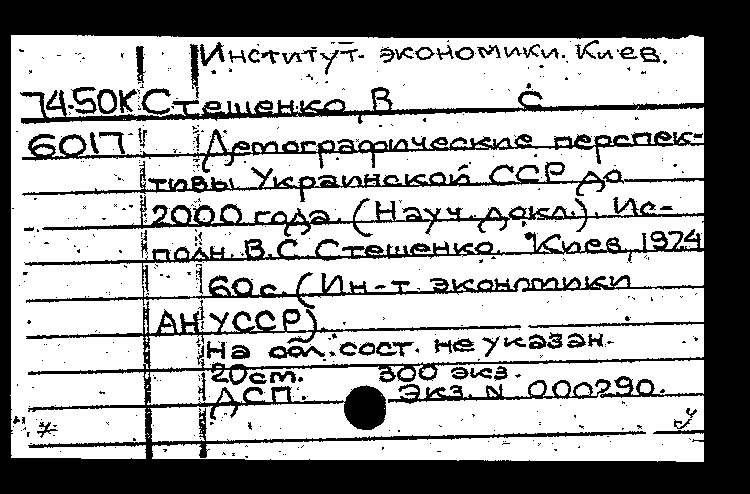 Институт. экономики. Киев.
74.50К Стешенко, В С
6017 Демографические перспек-
тивы Украинской ССР до
2000 года. (Науч. докл.). Ис-
полн. В.С Стешенко. Киев, 1974
60 с. (Ин-т экономики
АН УССР).
На обл. сост. не указан.
20 cm. 300 экз.
ДСП. Экз. N 000290.
у